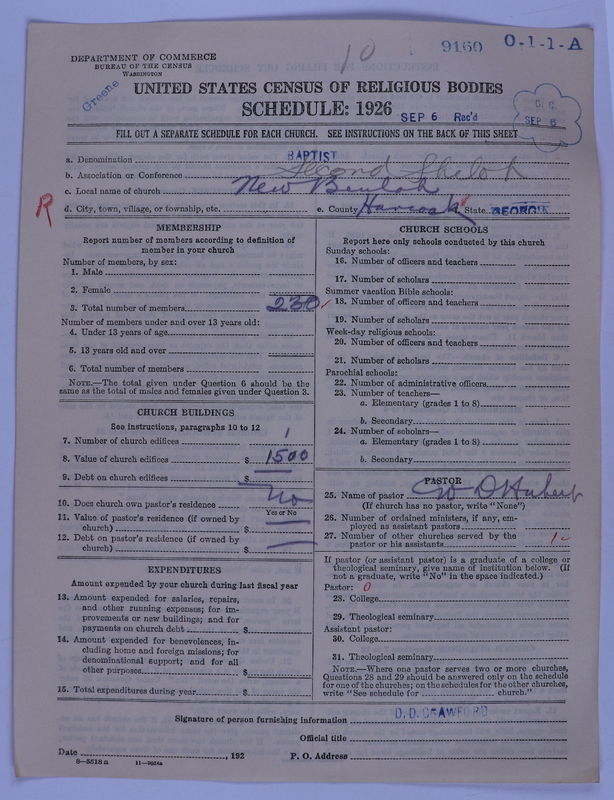 10 9160 O-1-1-A
DEPARTMENT OF COMMERCE
BUREAU OF THE CENSUS
WASHINGTON
Greene
UNITED STATES CENSUS OF RELIGIOUS BODIES
SCHEDULE: 1926
SEP 6 Rec'd
C. C.
SEP 6
FILL OUT A SEPARATE SCHEDULE FOR EACH CHURCH. SEE INSTRUCTIONS ON THE BACK OF THIS SHEET
a. Denomination BAPTIST
b. Association or Conference Second Shiloh
c. Local name of church New Beulah
R
d. City, town, village, or township, etc. e. County Hancock State GEORGIA
MEMBERSHIP
Report number of members according to definition of
member in your church
Number of members, by sex:
1. Male
2. Female
3. Total number of members 230
Number of members under and over 13 years old:
4. Under 13 years of age
5. 13 years old and over
6. Total number of members
NOTE.—The total given under Question 6 should be the
same as the total of males and females given under Question 3.
CHURCH BUILDINGS
See instructions, paragraphs 10 to 12
7. Number of church edifices 1
8. Value of church edifices $ 1500
9. Debt on church edifices $
10. Does church own pastor's residence No
Yes or No
11. Value of pastor's residence (if owned by
church) $
12. Debt on pastor's residence (if owned by
church) $
EXPENDITURES
Amount expended by your church during last fiscal year
13. Amount expended for salaries, repairs,
and other running expenses; for im-
provements or new buildings; and for
payments on church debt $
14. Amount expended for benevolences, in-
cluding home and foreign missions; for
denominational support; and for all
other purposes $
15. Total expenditures during year $
CHURCH SCHOOLS
Report here only schools conducted by this church
Sunday schools:
16. Number of officers and teachers
17. Number of scholars
Summer vacation Bible schools:
18. Number of officers and teachers
19. Number of scholars
Week-day religious schools:
20. Number of officers and teachers
21. Number of scholars
Parochial schools:
22. Number of administrative officers
23. Number of teachers—
a. Elementary (grades 1 to 8)
b. Secondary
24. Number of scholars—
a. Elementary (grades 1 to 8)
b. Secondary
PASTOR
25. Name of pastor W D Hubert
(If church has no pastor, write "None")
26. Number of ordained ministers, if any, em-
ployed as assistant pastors
27. Number of other churches served by the
pastor or his assistants 1
If pastor (or assistant pastor) is a graduate of a college or
theological seminary, give name of institution below. (If
not a graduate, write "No" in the space indicated.)
Pastor: 0
28. College
29. Theological seminary
Assistant pastor:
30. College
31. Theological seminary
NOTE.—Where one pastor serves two or more churches,
Questions 28 and 29 should be answered only on the schedule
for one of the churches; on the schedules for the other churches,
write "See schedule for church."
Signature of person furnishing information D. D. CRAWFORD
Official title
Date , 192 P. O. Address
8—5518a 11—9654a